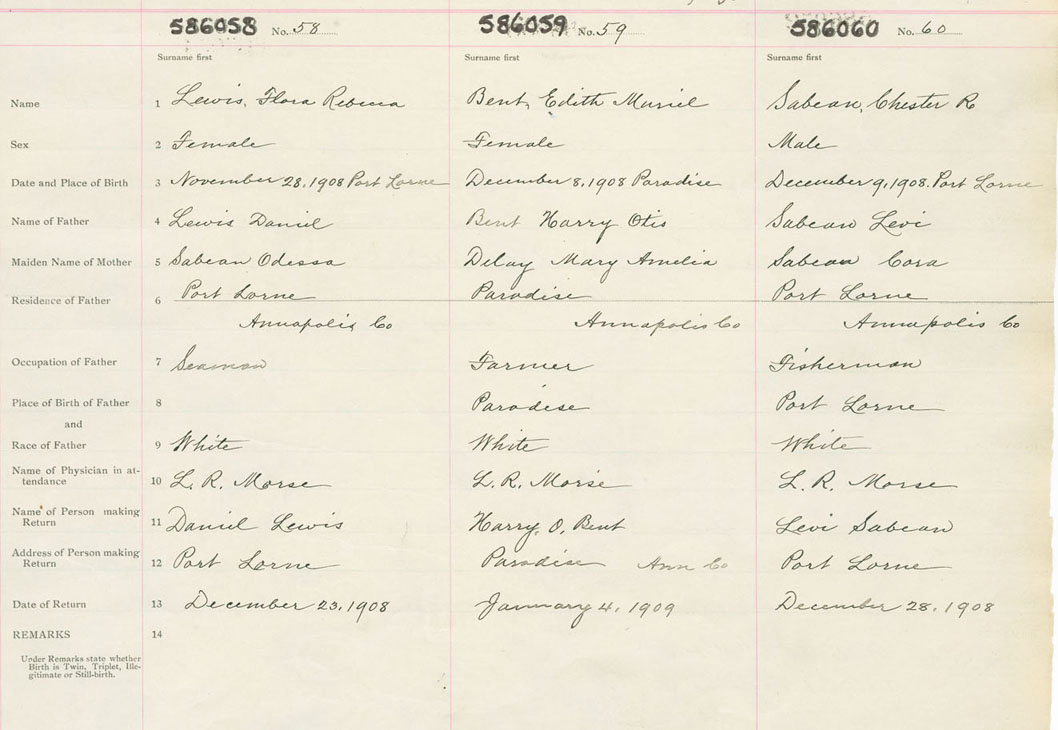 586058 No. 58 586059 No. 59 586060 No. 60
Surname first Surname first Surname first
Name 1 Lewis, Flora Rebecca Bent, Edith Muriel Sabean, Chester R
Sex 2 Female Female Male
Date and Place of Birth 3 November 28, 1908 Port Lorne December 8, 1908 Paradise December 9, 1908. Port Lorne
Name of Father 4 Lewis Daniel Bent Harry Otis Sabean Levi
Maiden Name of Mother 5 Sabean Odessa Delay Mary Amelia Sabean Cora
Residence of Father 6 Port Lorne Paradise Port Lorne
Annapolis Co Annapolis Co Annapolis Co
Occupation of Father 7 Seaman Farmer Fisherman
Place of Birth of Father 8 Paradise Port Lorne
and
Race of Father 9 White White White
Name of Physician in at-
tendance 10 L. R. Morse L. R. Morse L. R. Morse
Name of Person making
Return 11 Daniel Lewis Harry, O, Bent Levi Sabean
Address of Person making
Return 12 Port Lorne Paradise Ann Co Port Lorne
Date of Return 13 December 23, 1908 January 4, 1909 December 28, 1908
REMARKS 14
Under Remarks state whether
Birth is Twin, Triplet, Ille-
gitimate or Still-birth.